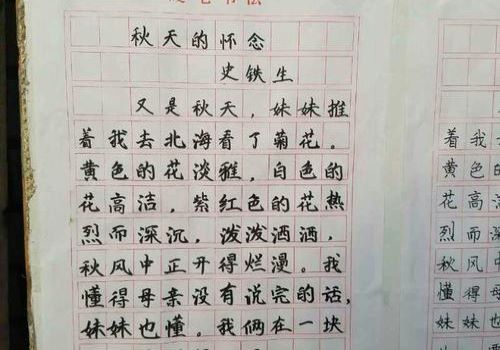 秋天的怀念
史铁生
又是秋天，妹妹推
着我去北海看了菊花。
黄色的花淡雅，白色的
花高洁，紫红色的花热
烈而深沉，泼泼洒洒，
秋风中正开得烂漫。我
懂得母亲没有说完的话，
妹妹也懂。我俩在一块
着我
黄色
花高
烈而
秋风中
懂得
妹妹